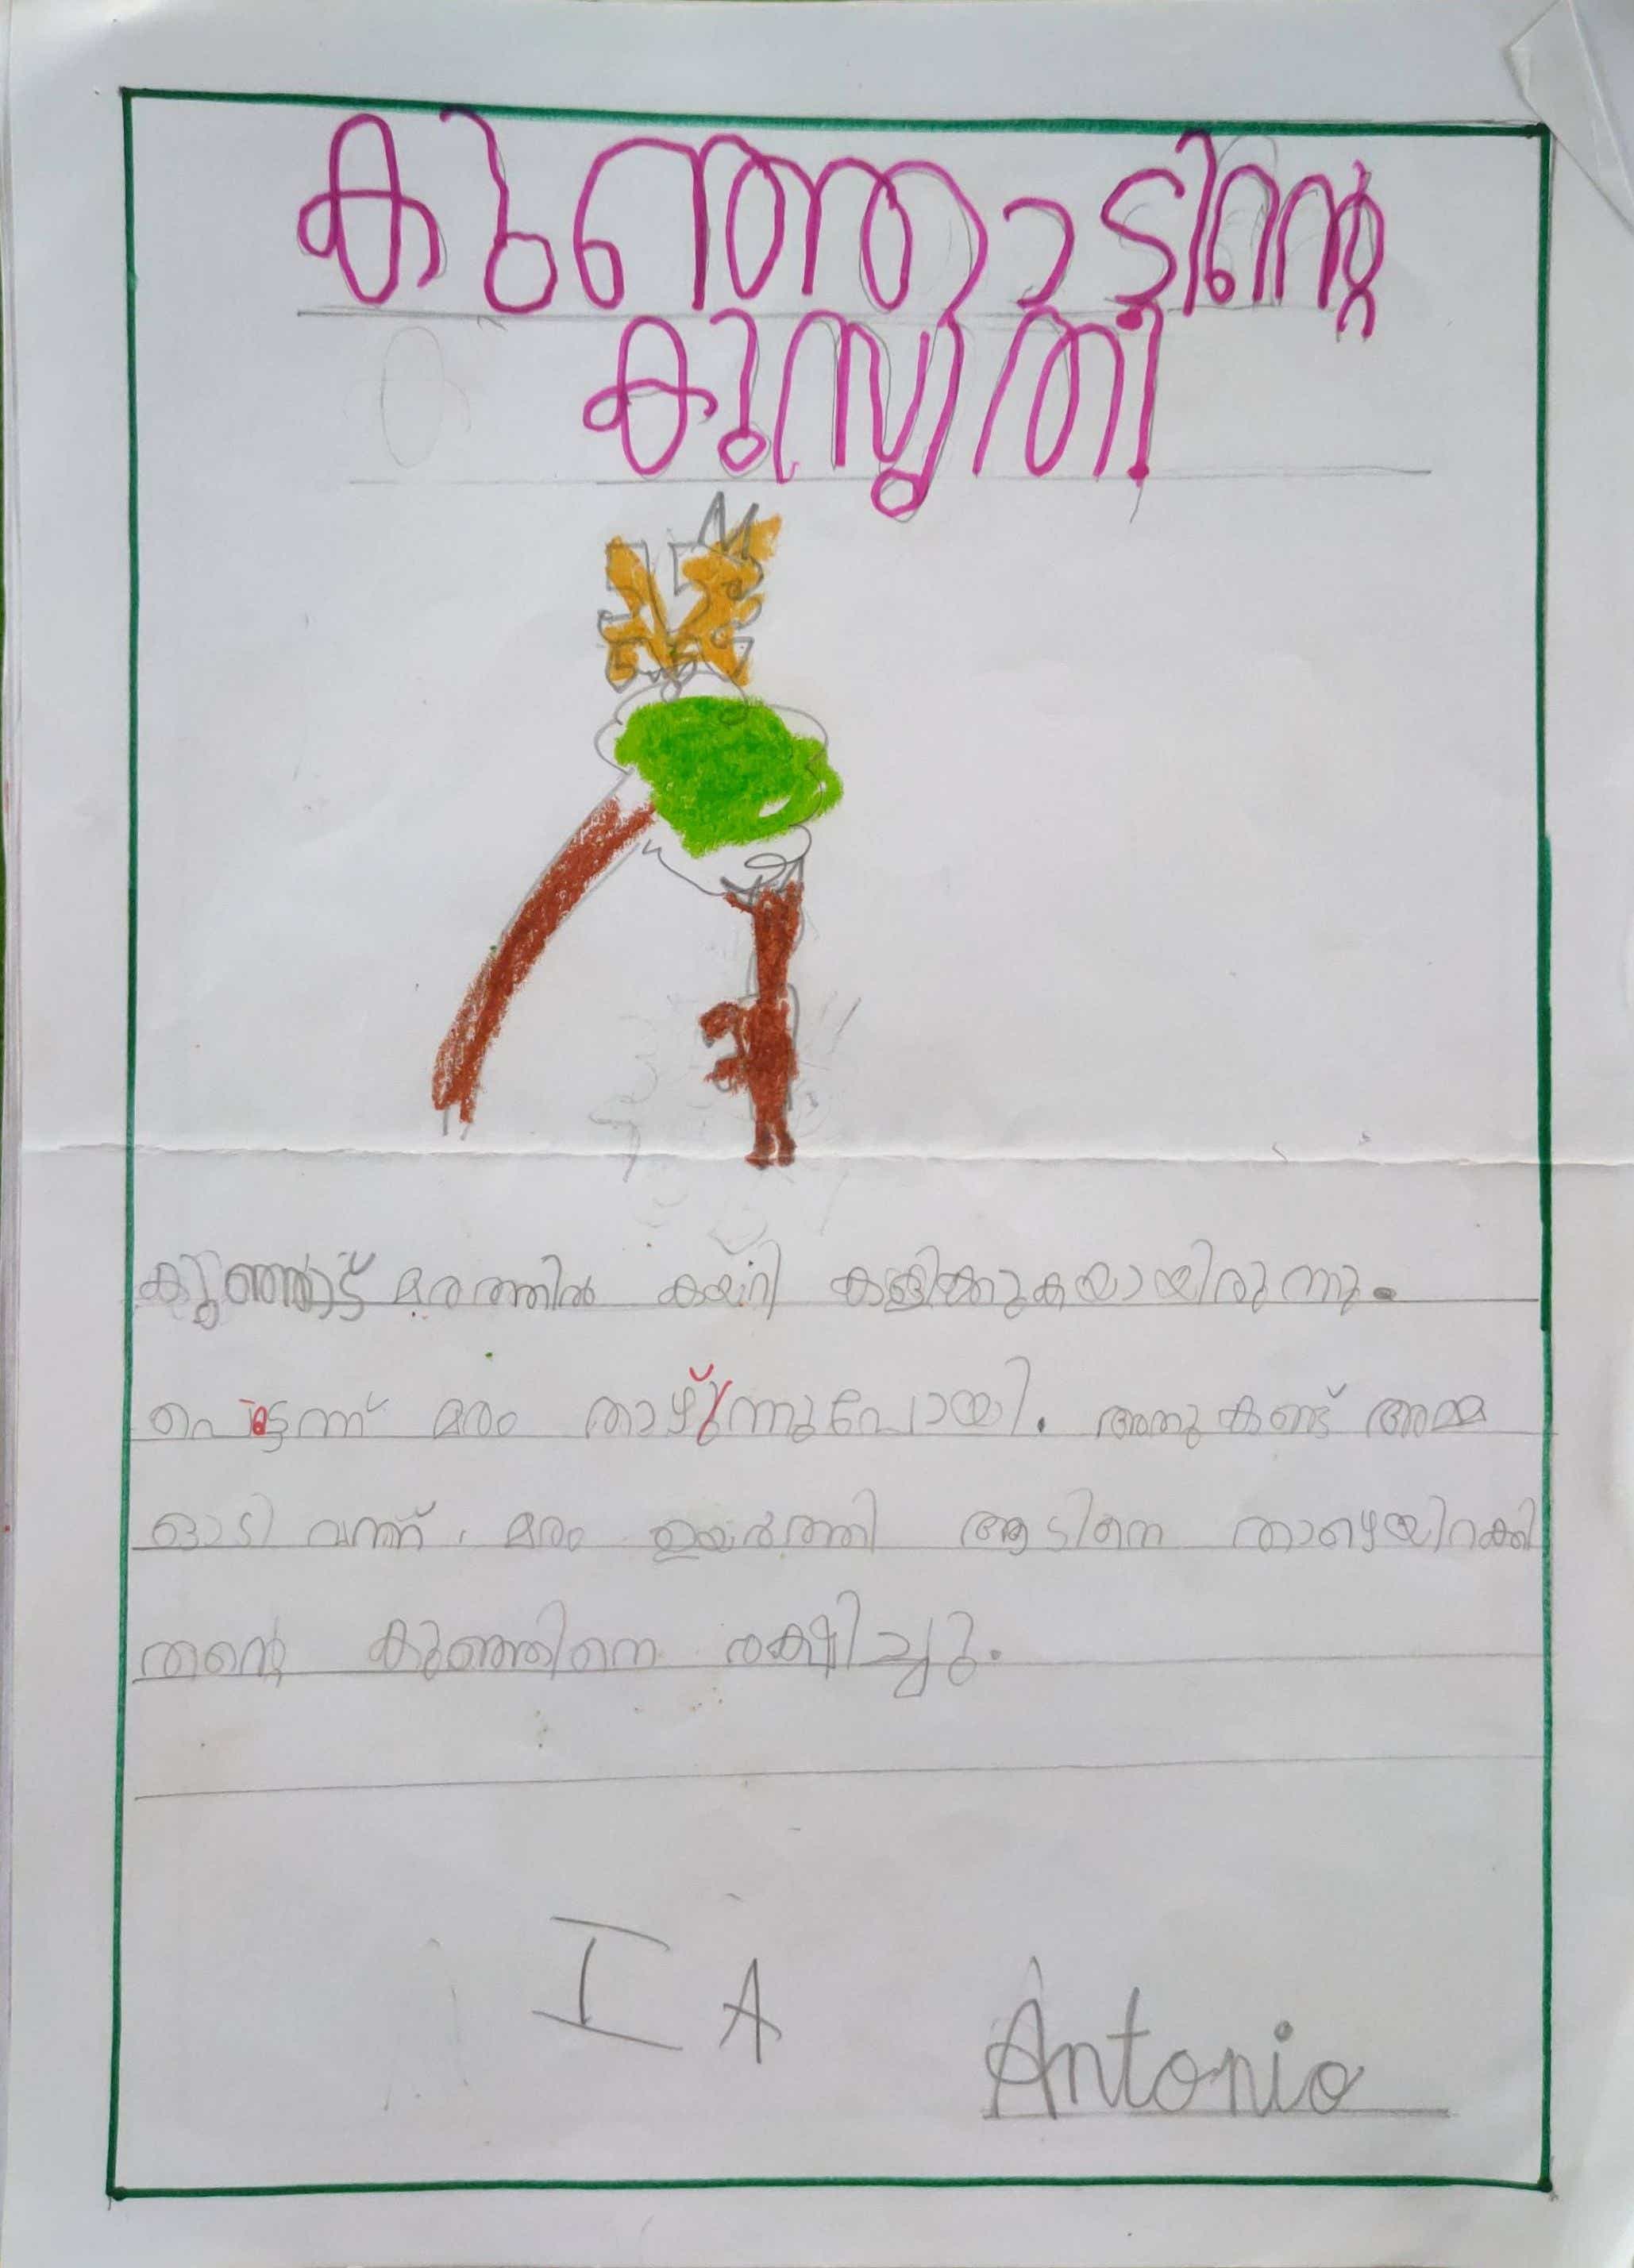 കുഞ്ഞാടിന്റെ
കുസൃതി
കുഞ്ഞാട് മരത്തിൽ കയറി കളിക്കുകയായിരുന്നു.
പെട്ടന്ന് മരം താഴ്ന്നുപോയി. അതു കണ്ട് അമ്മ
ഓടി വന്ന് മരം ഉയർത്തി ആടിനെ താഴെയിറക്കി
തന്റെ കുഞ്ഞിനെ രക്ഷിച്ചു.
I A
Antonio